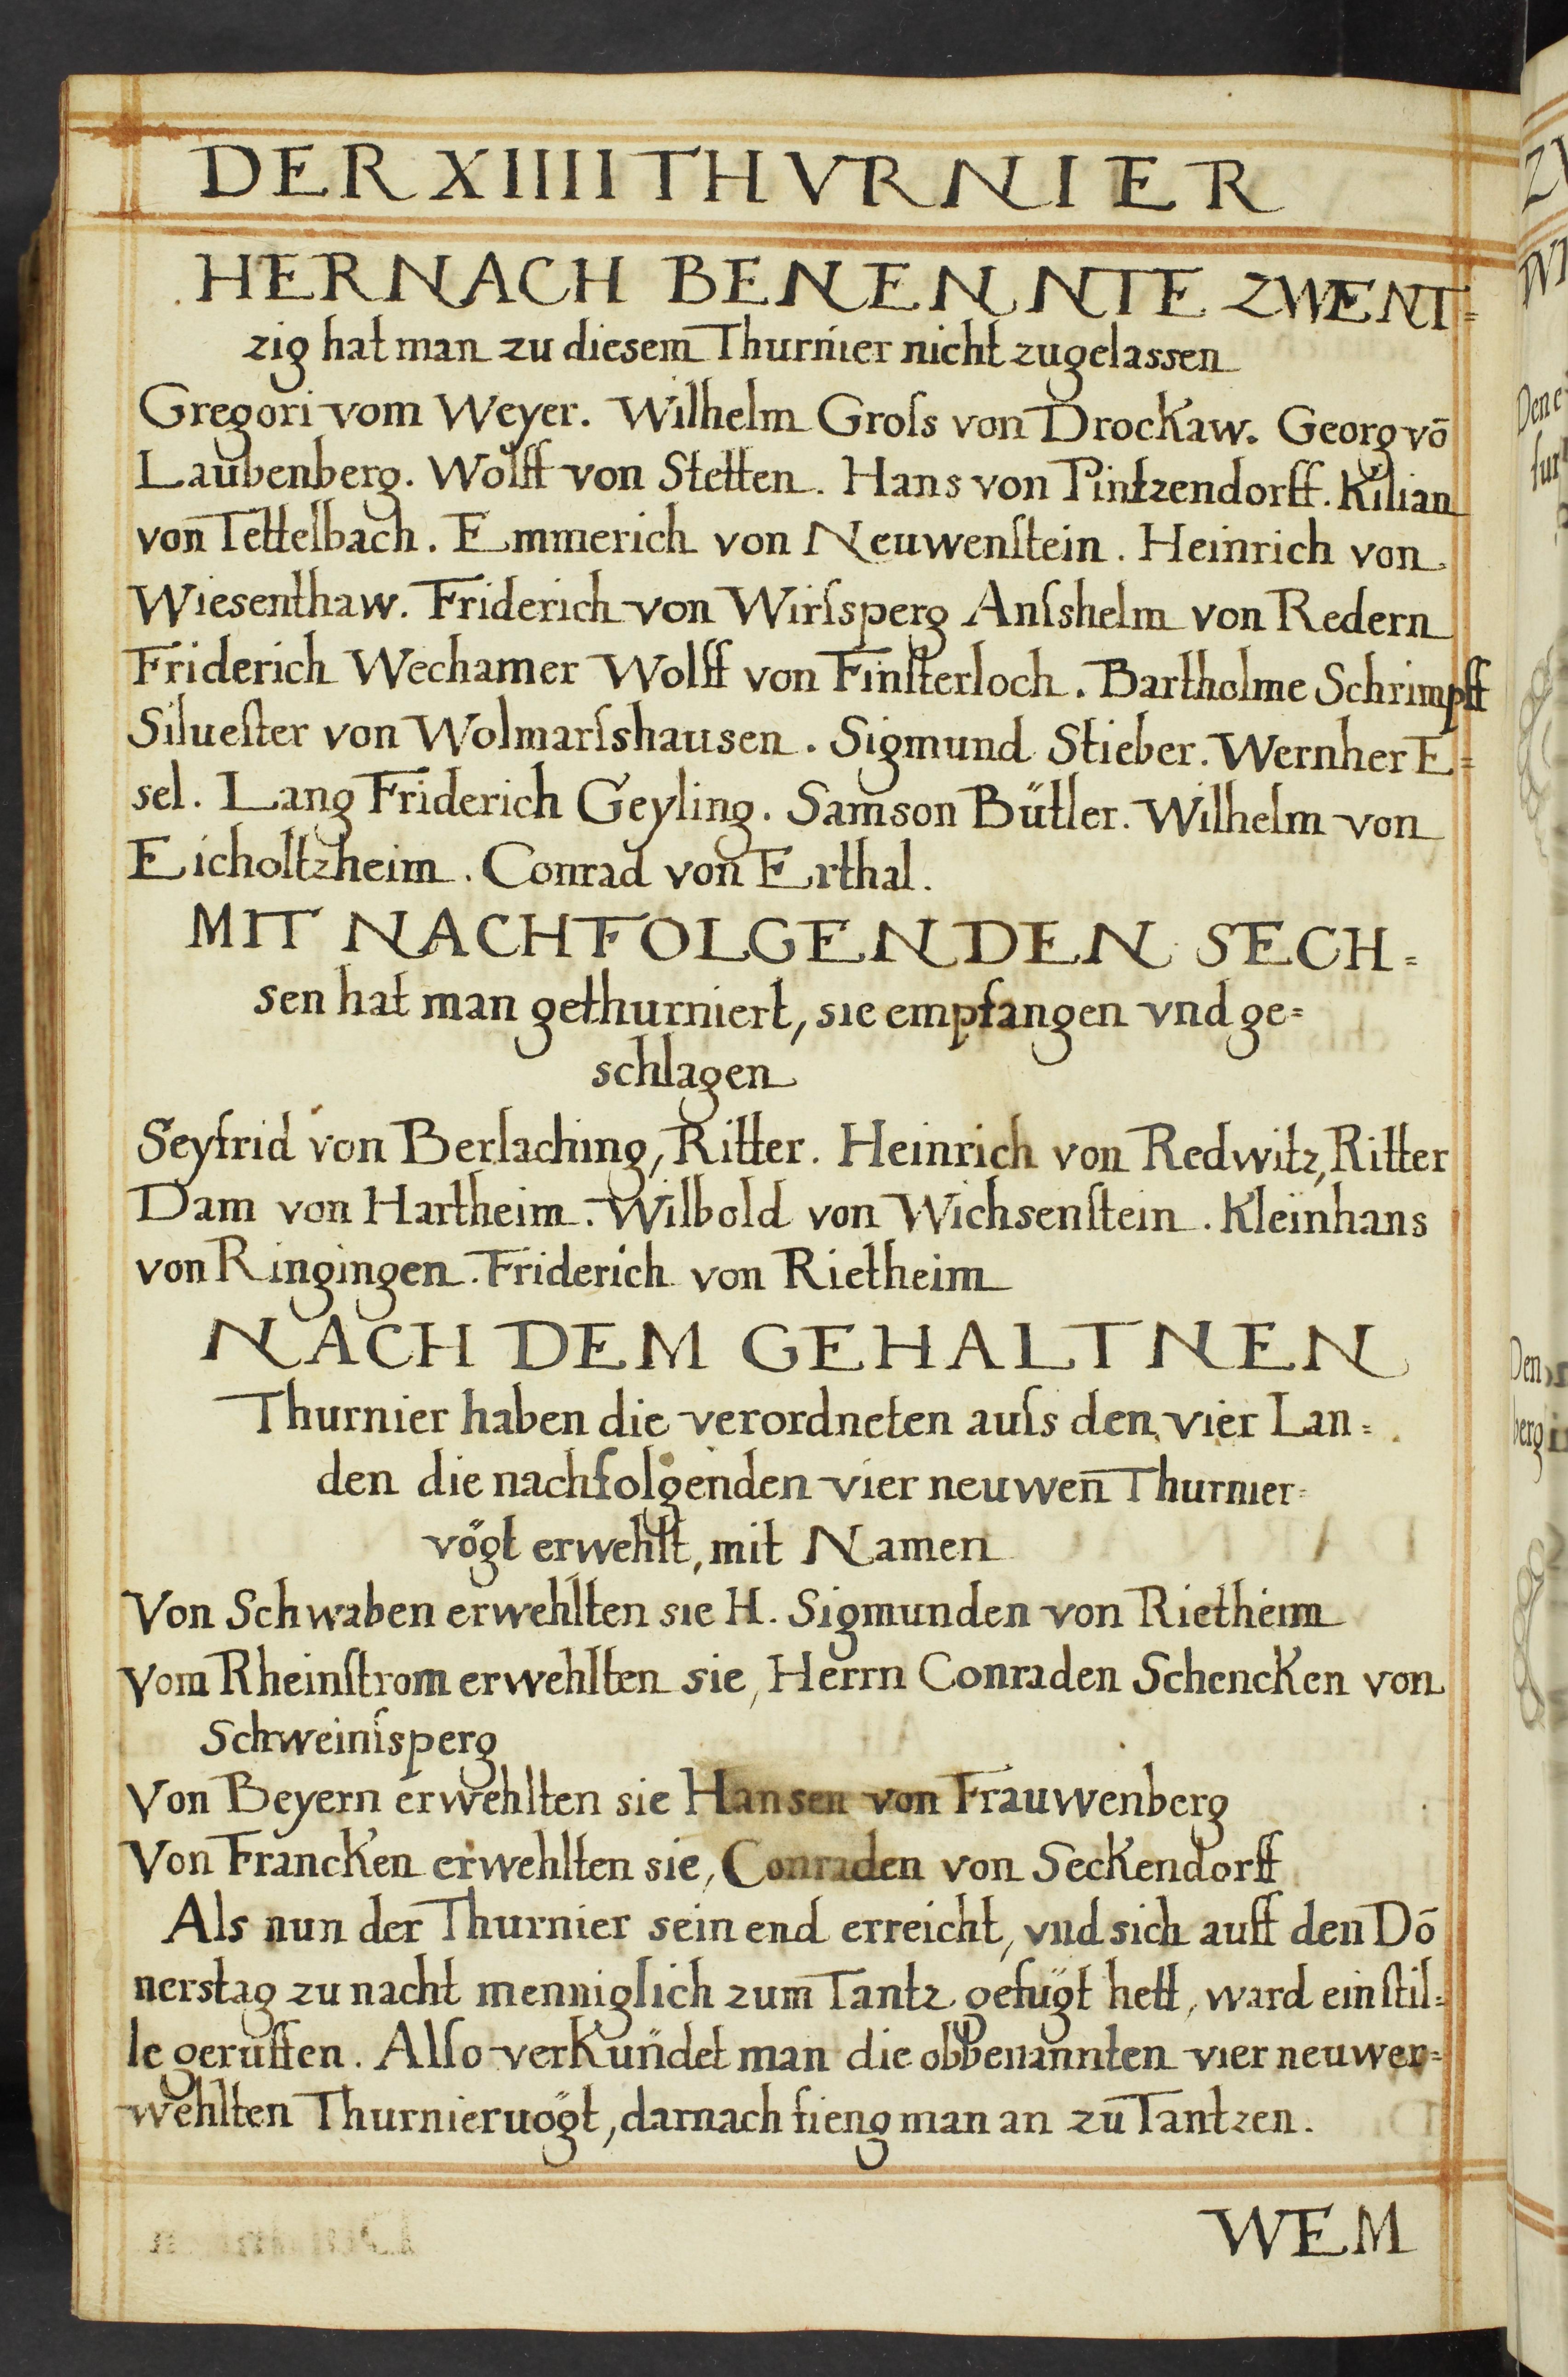 DER XIIII THVRNIER
HERNACH BENENNTE ZWENT=
zig hat man zu diesem Thurnier nicht zugelassen
Gregori vom Weyer. Wilhelm Groſs von Drockaw. Georg võ
Laubenberg. Wolff von Stetten. Hans von Pintzendorff. Kilian
von Tettelbach. Emmerich von Neuwenſtein. Heinrich von
Wiesenthaw. Friderich von Wirſsperg Anſshelm von Redern
Friderich Wechamer Wolff von Finſterloch. Bartholme Schrimpff
Silueſter von Wolmarſshausen. Sigmund Stieber. Wernher E=
sel. Lang Friderich Geyling. Samson Bütler. Wilhelm von
Eicholtzheim. Conrad von Erthal.
MIT NACHFOLGENDEN SECH=
sen hat man gethurniert, sie empfangen vnd ge=
schlagen
Seyfrid von Berlaching, Ritter. Heinrich von Redwitz, Ritter
Dam von Hartheim. Wilbold von Wichsenſtein. Kleinhans
von Ringingen. Friderich von Rietheim
NACH DEM GEHALTNEN
Thurnier haben die verordneten auſs den vier Lan=
den die nachfolgenden vier neuwen Thurnier=
vögt erwehlt, mit Namen
Von Schwaben erwehlten sie H. Sigmunden von Rietheim
Vom Rheinſtrom erwehlten sie, Herrn Conraden Schencken von
Schweinſsperg
Von Beyern erwehlten sie Hansen von Frauwenberg
Von Francken erwehlten sie, Conraden von Seckendorff
Als nun der Thurnier sein end erreicht, vnd sich auff den Dõ
nerstag zu nacht menniglich zum Tantz gefügt hett, ward ein ſtil=
le geruffen. Alſo verkündet man die obbenannten vier neuwer=
wehlten Thurnieruögt, darnach fieng man an zu Tantzen.
WEM